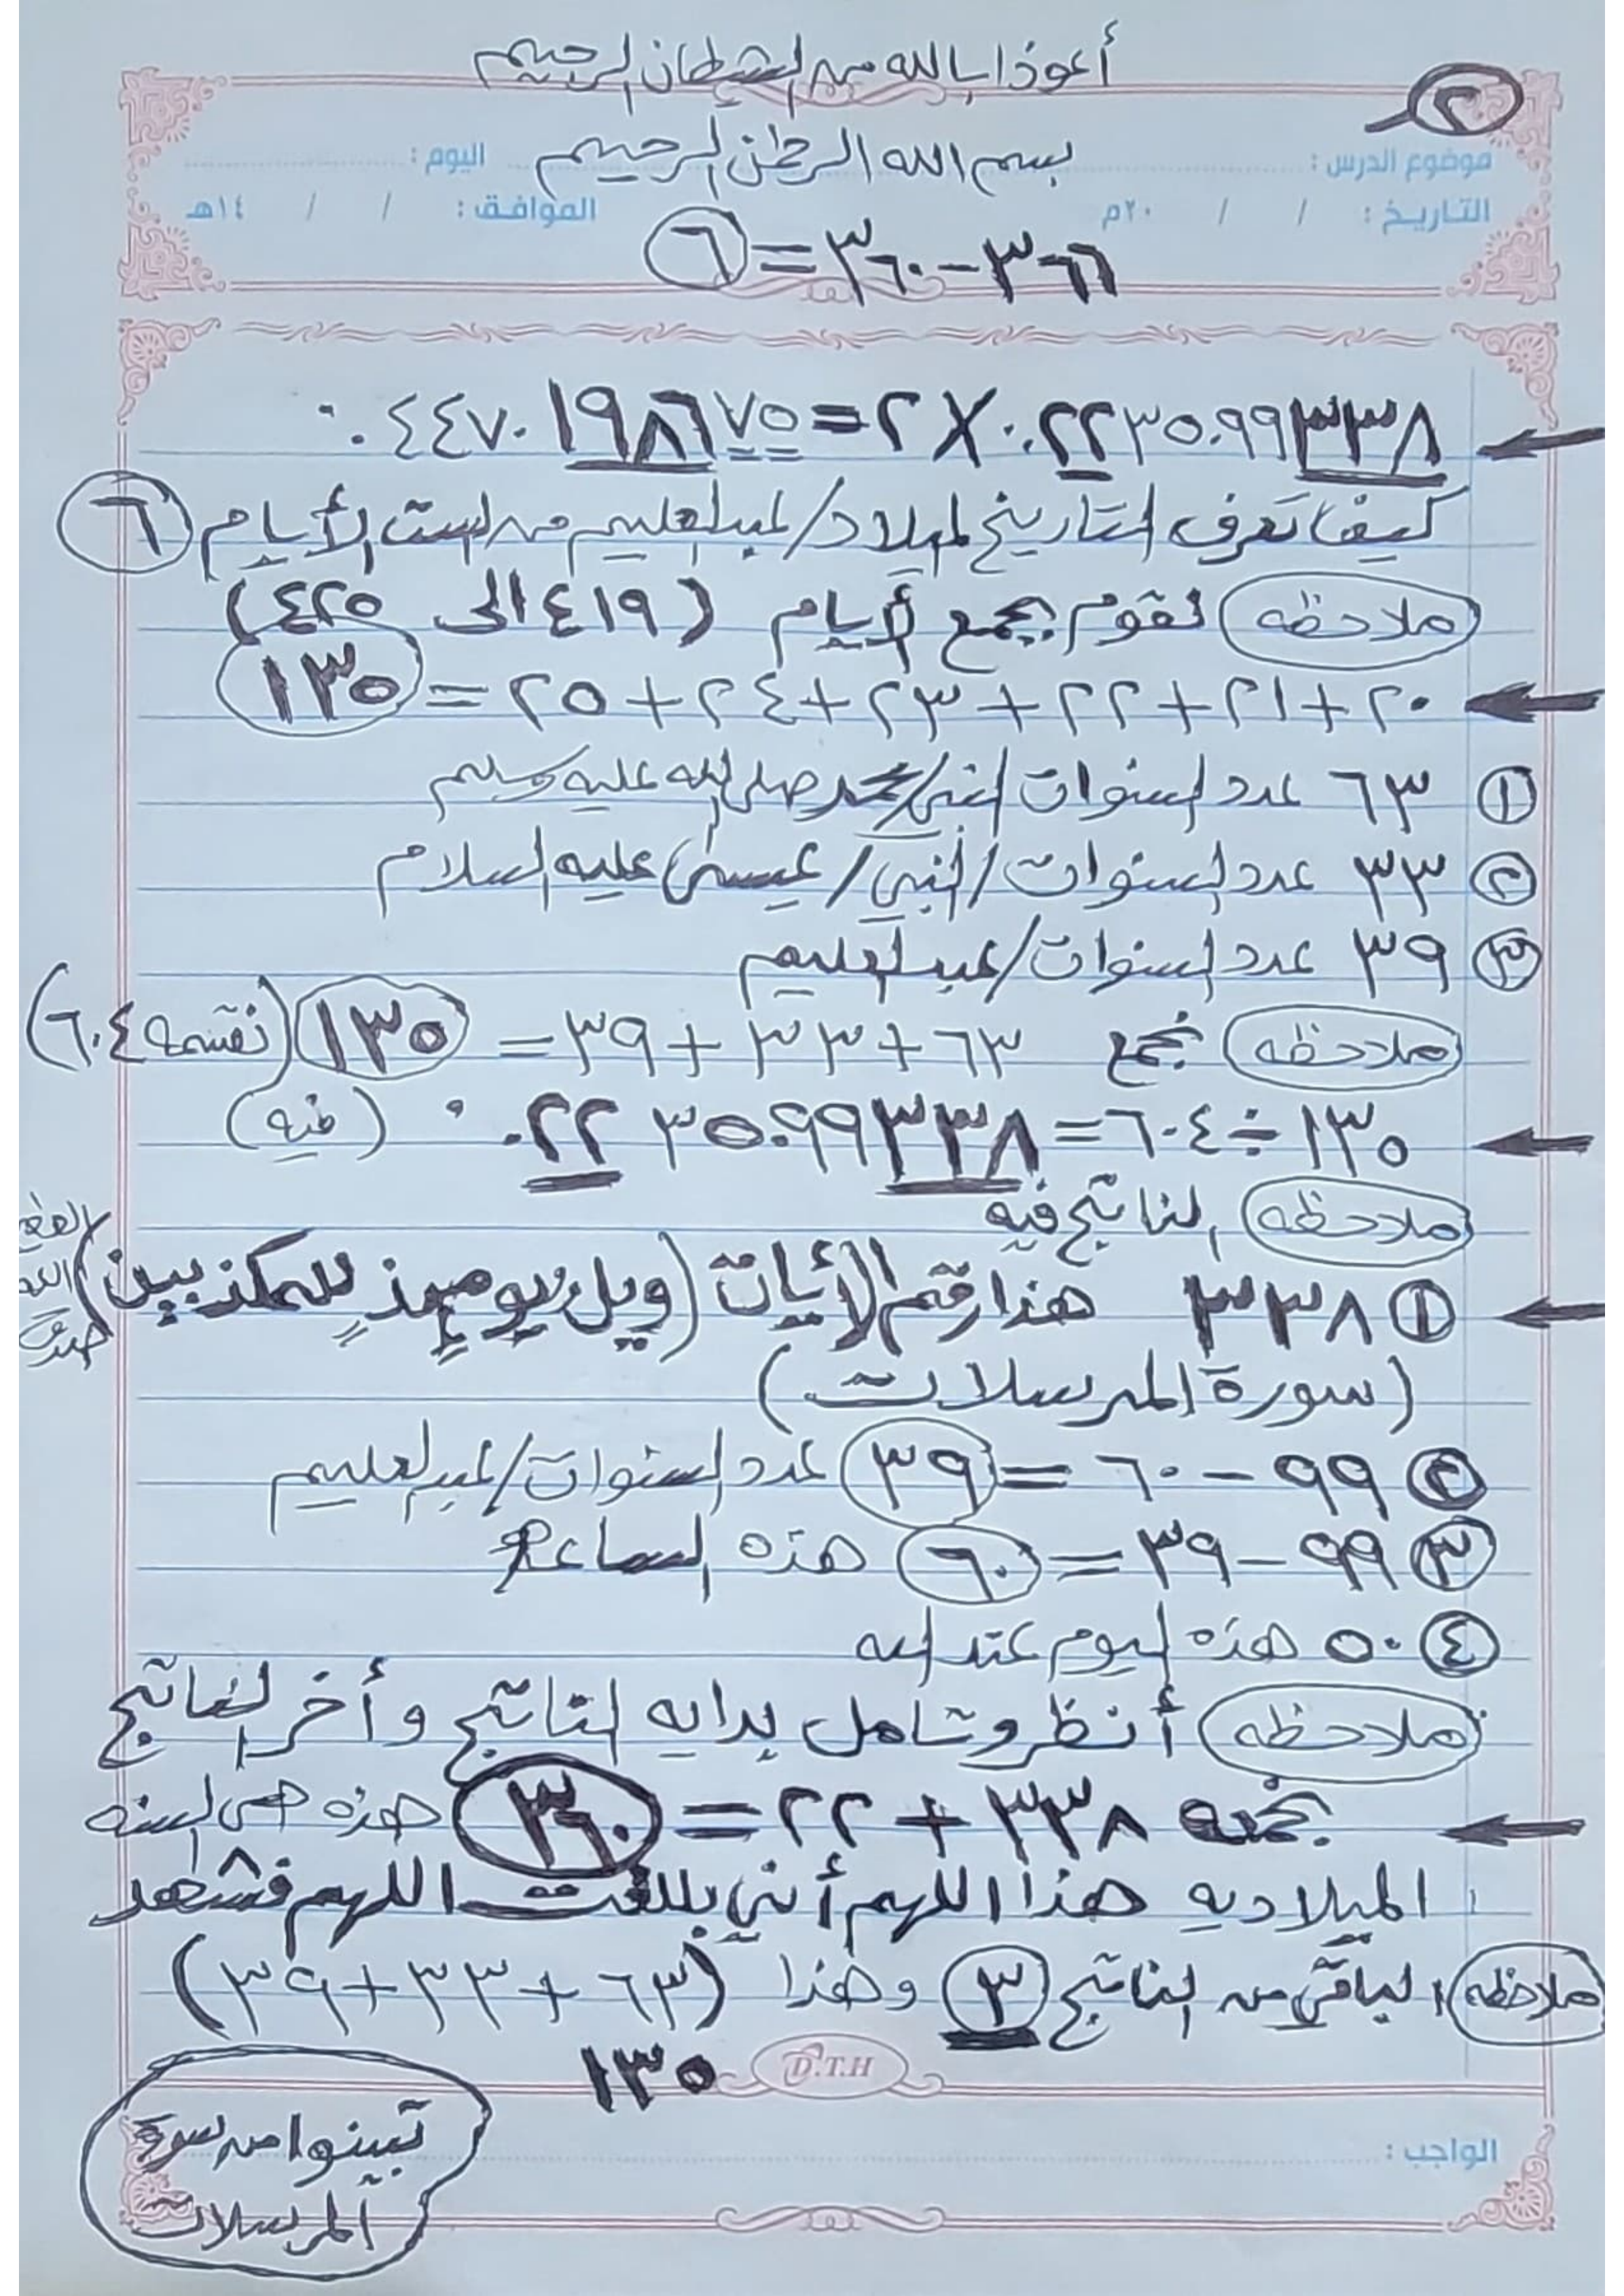 أعوذا بالله من الشيطان الرجيم
٢
بسم الله الرحمن الرحيم
موضوع الدرس : اليوم :
التاريخ : / / ٢٠م الموافق : / / ١٤هـ
٣٦٦ - ٣٦٠ = ٦
٠.٢٢٣٥٠٩٩٣٣٨ × ٢ = ٠.٤٤٧٠١٩٨٦٧٥
كيفا تعرف التاريخ لميلاد/عبدالعليم من الست الأيام ٦
ملاحظه نقوم بجمع أيام (٤١٩ الى ٤٢٥)
٢٠ + ٢١ + ٢٢ + ٢٣ + ٢٤ + ٢٥ = ١٣٥
١ ٦٣ عدد السنوات النبي/محمد صلى الله عليه وسلم
٢ ٣٣ عدد السنوات/النبي/عيسى عليه السلام
٣ ٣٩ عدد السنوات/عبدالعليم
ملاحظه نجمع ٦٣ + ٣٣ + ٣٩ = ١٣٥ (نقسمه ٦٠٤)
١٣٥ ÷ ٦٠٤ = ٠.٢٢٣٥٠٩٩٣٣٨ (فيه)
ملاحظه الناتج فيه
١ ٣٣٨ هذا رقم الأيات (ويل يوميذٍ للمكذبين)
(سورة المرسلات)
٢ ٩٩ - ٦٠ = ٣٩ عدد السنوات/عبدالعليم
٣ ٩٩ - ٣٩ = ٦٠ هذه الساعة
٤ ٥٠ هذه اليوم عند الله
ملاحظه أنظر وتامل بدايه الناتج وأخر الناتج
نجمعه ٣٣٨ + ٢٢ = ٣٦٠ هذه هي السنه
الميلاديه هذا اللهم أني بللغت اللهم فشهد
ملاحظه الباقي من الناتج ٣ وهذا (٦٣ + ٣٣ + ٣٩)
١٣٥
D.T.H
تبينوا من سورة
المرسلات
الواجب :